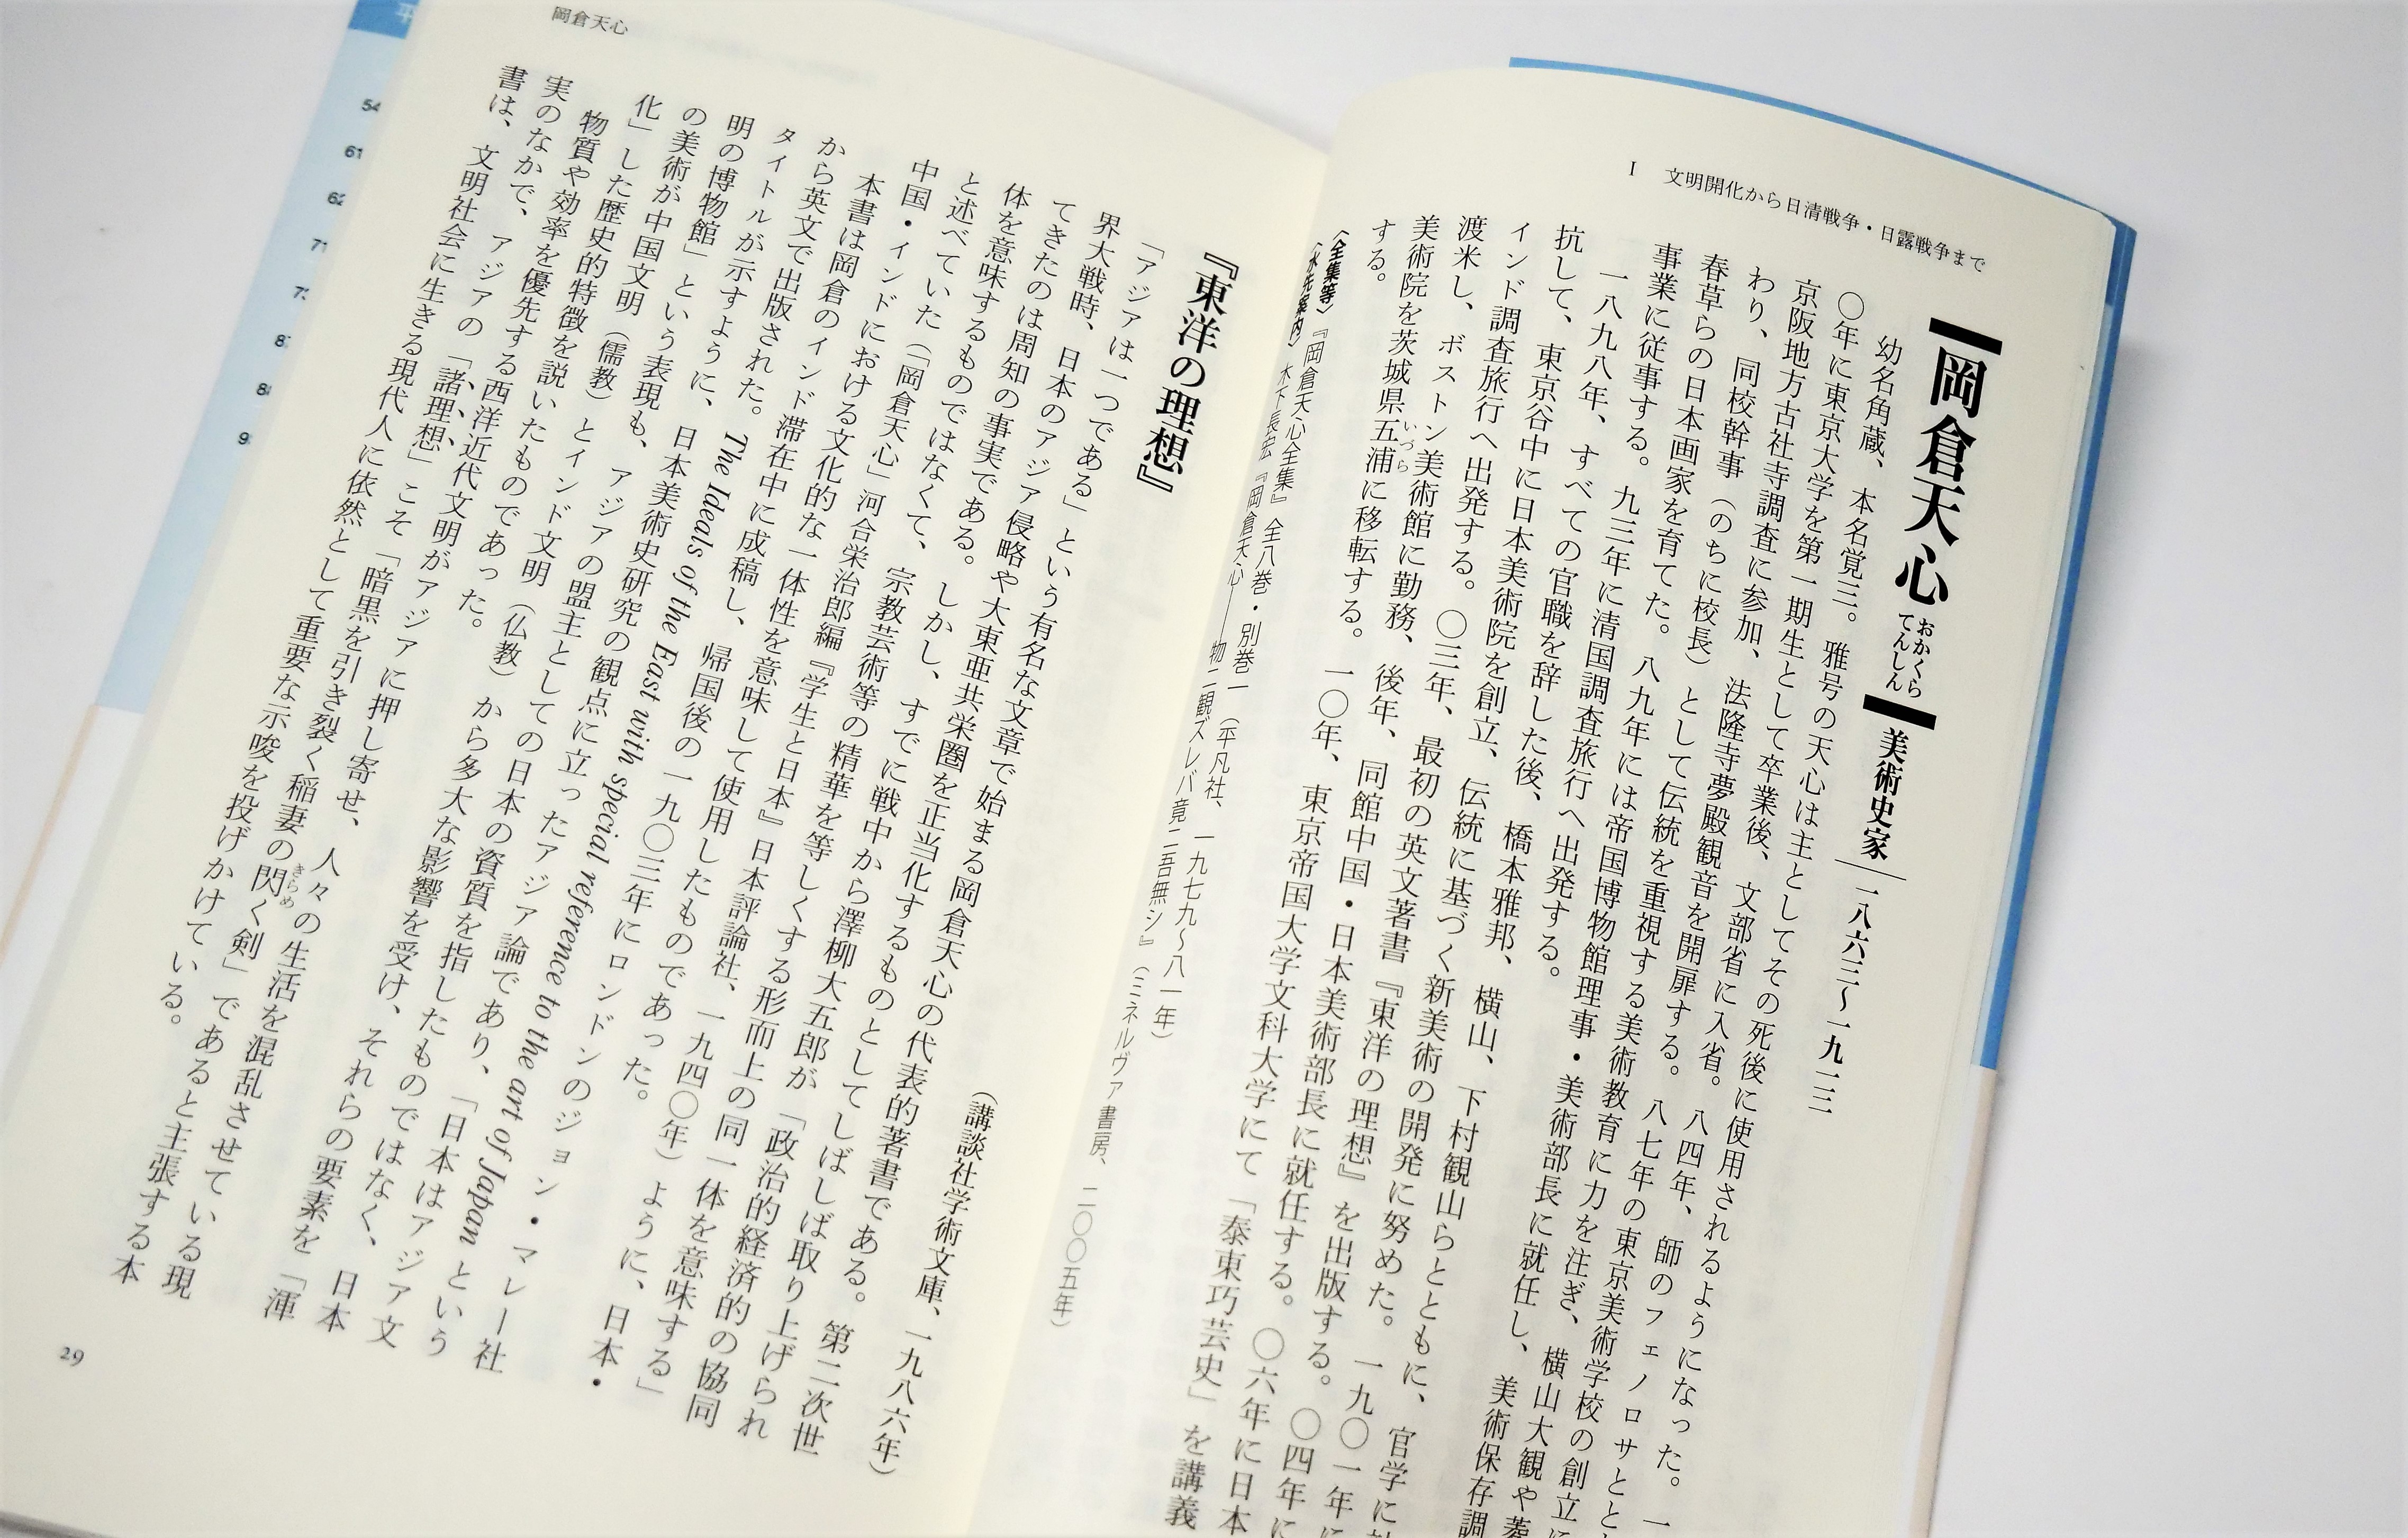 I 文明開化から日清戦争・日露戦争まで
岡倉天心
おかくら
てんしん
美術史家
一八六三〜一九一三
幼名角蔵、本名覚三。雅号の天心は主としてその死後に使用されるようになった。一
〇年に東京大学を第一期生として卒業後、文部省に入省。八四年、師のフェノロサとと
京阪地方古社寺調査に参加、法隆寺夢殿観音を開扉する。八七年の東京美術学校の創立に
わり、同校幹事（のちに校長）として伝統を重視する美術教育に力を注ぎ、横山大観や菱
春草らの日本画家を育てた。八九年には帝国博物館理事・美術部長に就任し、美術保存調
事業に従事する。九三年に清国調査旅行へ出発する。
一八九八年、すべての官職を辞した後、橋本雅邦、横山、下村観山らとともに、官学に
抗して、東京谷中に日本美術院を創立、伝統に基づく新美術の開発に努めた。一九〇一年に
インド調査旅行へ出発する。〇三年、最初の英文著書『東洋の理想』を出版する。〇四年に
渡米し、ボストン美術館に勤務、後年、同館中国・日本美術部長に就任する。〇六年に日本
美術院を茨城県五浦に移転する。一〇年、東京帝国大学文科大学にて「泰東巧芸史」を講義
いづら
する。
〈全集等〉『岡倉天心全集』全八巻・別巻一（平凡社、一九七九〜八一年）
〈水先案内〉木下長宏『岡倉天心――物ニ観ズレバ竟ニ吾無シ』（ミネルヴァ書房、二〇〇五年）
岡倉天心
『東洋の理想』
（講談社学術文庫、一九八六年）
「アジアは一つである」という有名な文章で始まる岡倉天心の代表的著書である。第二次世
界大戦時、日本のアジア侵略や大東亜共栄圏を正当化するものとしてしばしば取り上げられ
てきたのは周知の事実である。しかし、すでに戦中から澤柳大五郎が「政治的経済的の協同
体を意味するものではなくて、宗教芸術等の精華を等しくする形而上の同一体を意味する」
と述べていた（「岡倉天心」河合栄治郎編『学生と日本』日本評論社、一九四〇年）ように、日本・
中国・インドにおける文化的な一体性を意味して使用したものであった。
本書は岡倉のインド滞在中に成稿し、帰国後の一九〇三年にロンドンのジョン・マレー社
から英文で出版された。The Ideals of the East with special reference to the art of Japan という
タイトルが示すように、日本美術史研究の観点に立ったアジア論であり、「日本はアジア文
明の博物館」という表現も、アジアの盟主としての日本の資質を指したものではなく、日本
の美術が中国文明（儒教）とインド文明（仏教）から多大な影響を受け、それらの要素を「渾
化」した歴史的特徴を説いたものであった。
物質や効率を優先する西洋近代文明がアジアに押し寄せ、人々の生活を混乱させている現
実のなかで、アジアの「諸理想」こそ「暗黒を引き裂く稲妻の閃く剣」であると主張する本
きらめ
書は、文明社会に生きる現代人に依然として重要な示唆を投げかけている。
29
54
61
62
71